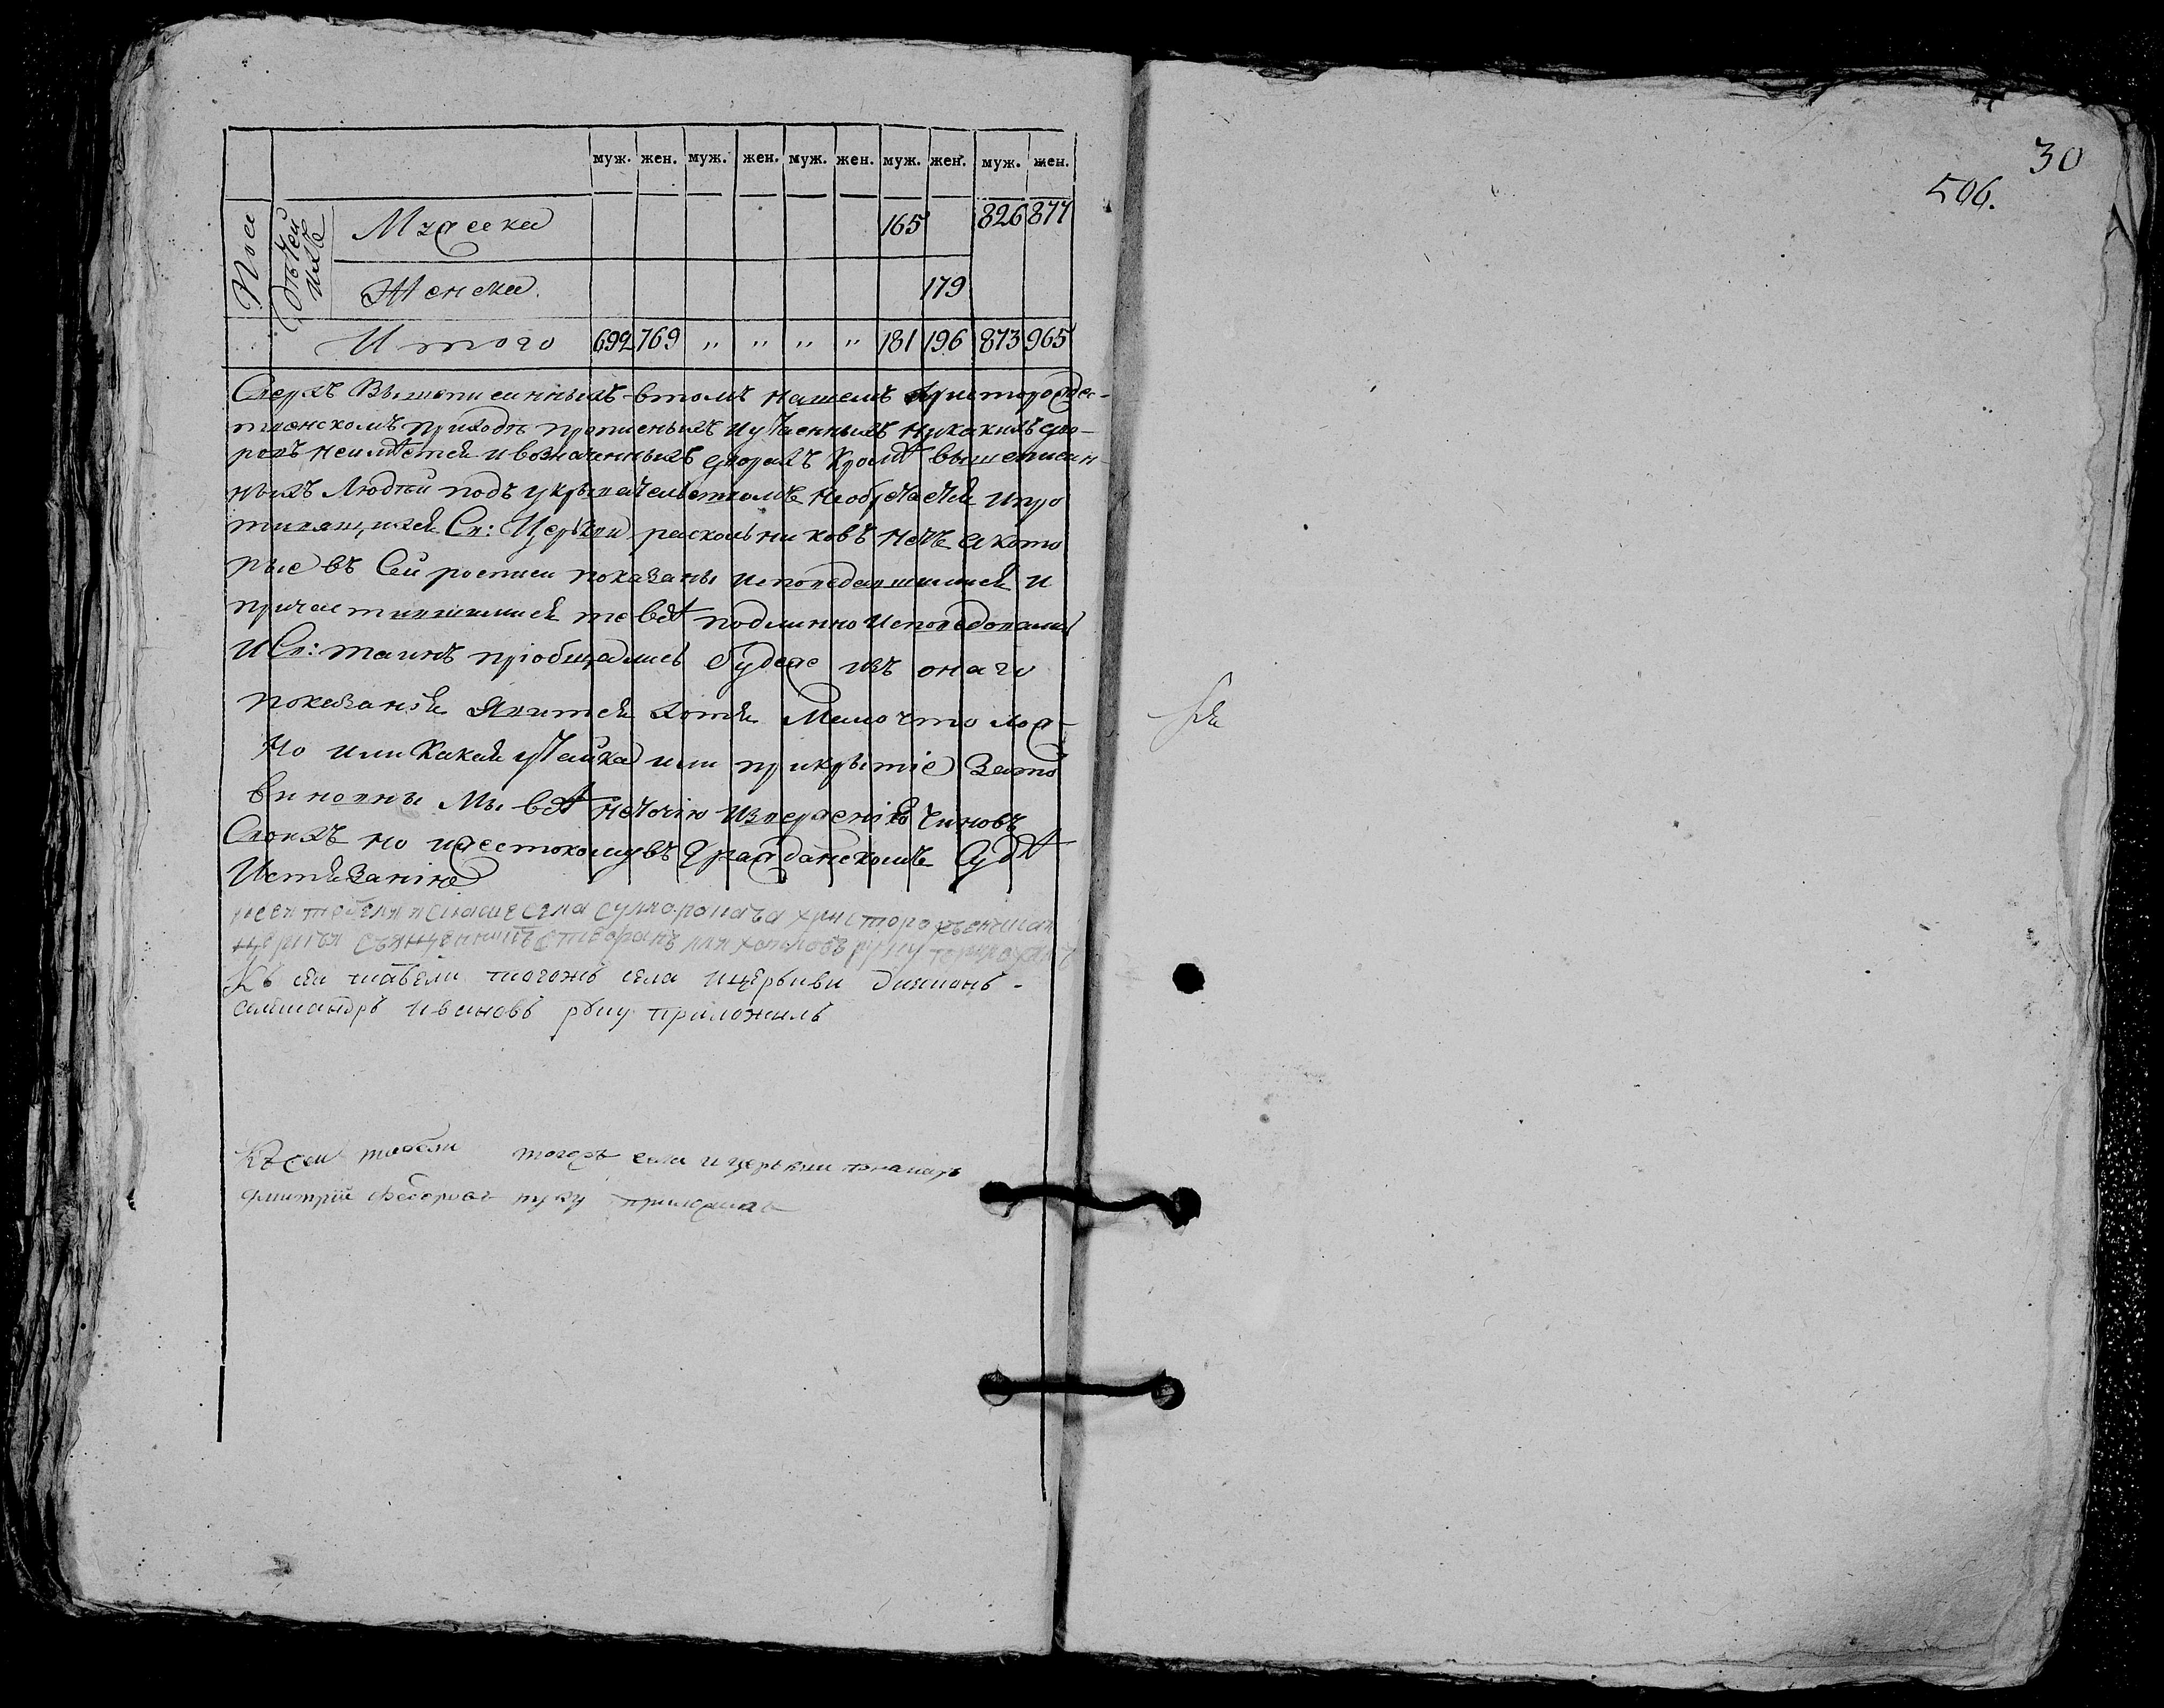 муж. жен. муж. жен. муж. жен. муж. жен. муж. жен.
Мужеска 165 826 877
Женска 179
Итого 692 769 〃 〃 〃 〃 181 196 873 965
Сверхъ вышеписанныхъ втомъ нашемъ христорождес-
твенскомъ приходѣ прописныхъ иутаенныхъ никакихъ дво-
ровъ неимѣется ивозначенныхъ дворахъ кромѣ вышеписан-
ныхъ людей подъ укрывательствомъ необретается ипро
тивящихся Св: Церкви раскольниковъ нетъ а кото
рые въ сей росписи показаны исповедавшимися и
причастившимися те всѣ подлинно исповедовались
и Св: таинъ приобщались будеже изъ онаго
показания явится хотя мало что лож-
но или какая утайка или прикрытіе зато
виновны мы всѣ неточію извержению чиновъ
своихъ но ижестокому въ гражданскомъ судѣ
истязанию
села христорождественская
церкви священникъ руку
Къ сей табели тогожъ села ицеркви диаконъ
Ивановъ руку приложилъ
Къ сей табели тогожъ села и церкви понамарь
Дмитрій Федоровъ руку приложилъ
30
506.